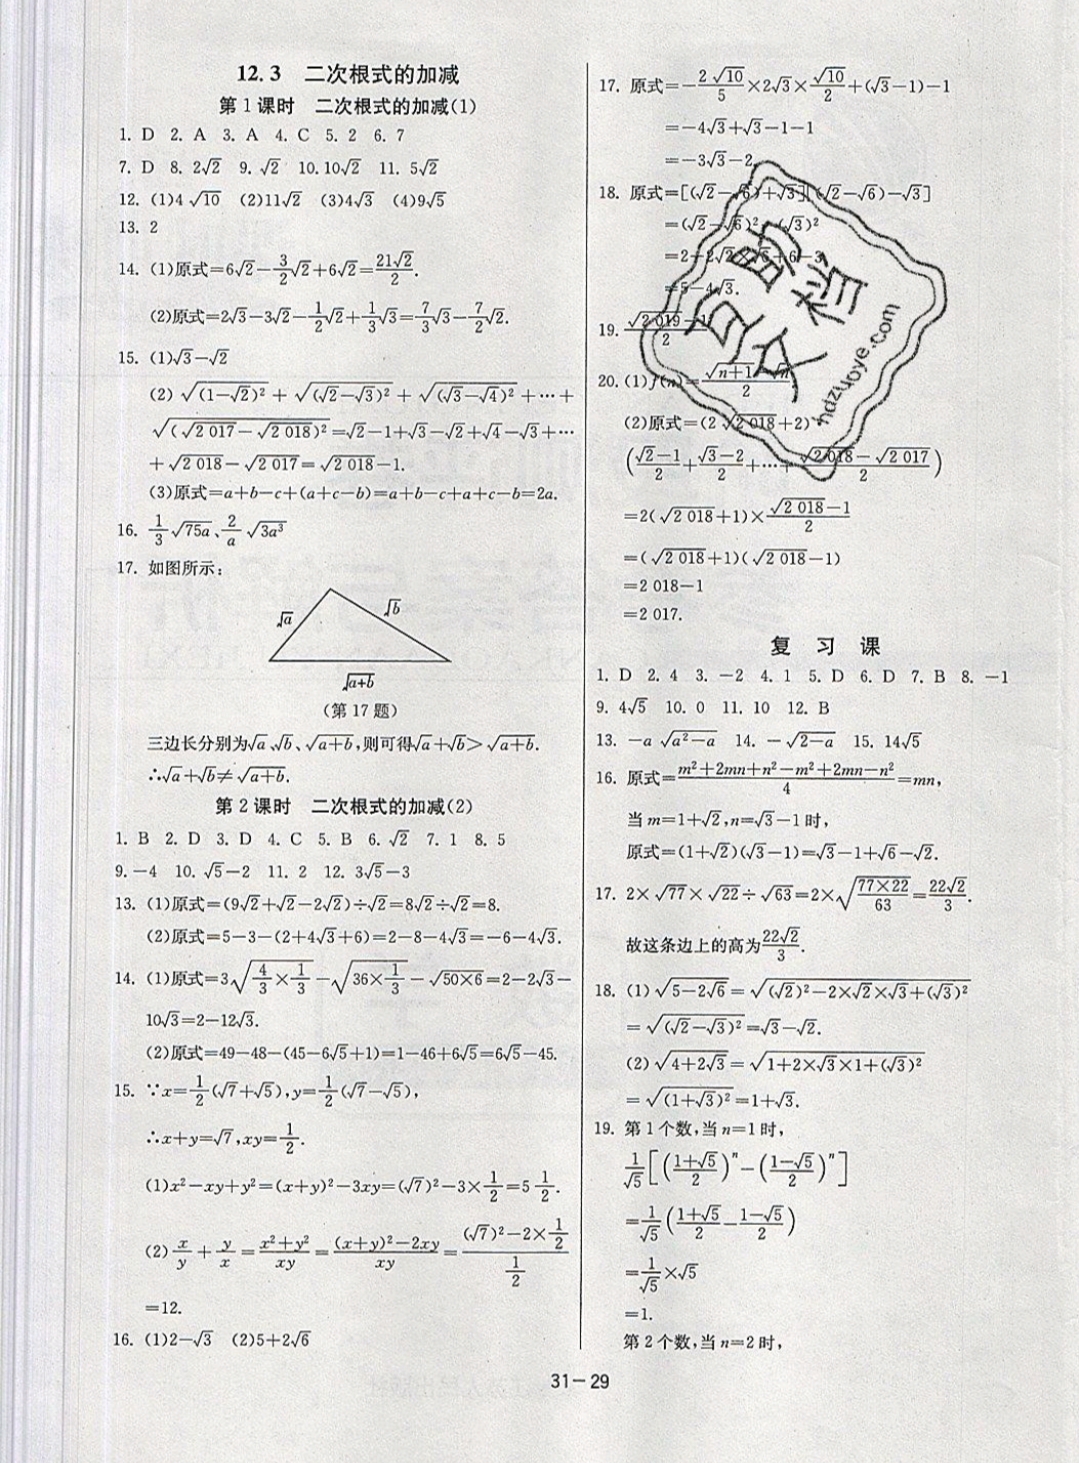 12.3 二次根式的加减
第1课时 二次根式的加减(1)
1. D 2. A 3. A 4. C 5. 2 6. 7
7. D 8. 2√2 9. √2 10. 10√2 11. 5√2
12. (1)4√10 (2)11√2 (3)4√3 (4)9√5
13. 2
14. (1)原式=6√2-3/2√2+6√2=21√2/2.
(2)原式=2√3-3√2-1/2√2+1/3√3=7/3√3-7/2√2.
15. (1)√3-√2
(2)√(1-√2)²+√(√2-√3)²+√(√3-√4)²+…+
√(√2 017-√2 018)²=√2-1+√3-√2+√4-√3+…
+√2 018-√2 017=√2 018-1.
(3)原式=a+b-c+(a+c-b)=a+b-c+a+c-b=2a.
16. 1/3√75a、2/a√3a³
17. 如图所示:
√a
√b
√a+b
(第17题)
三边长分别为√a、√b、√a+b,则可得√a+√b>√a+b.
∴√a+√b≠√a+b.
第2课时 二次根式的加减(2)
1. B 2. D 3. D 4. C 5. B 6. √2 7. 1 8. 5
9. -4 10. √5-2 11. 2 12. 3√5-3
13. (1)原式=(9√2+√2-2√2)÷√2=8√2÷√2=8.
(2)原式=5-3-(2+4√3+6)=2-8-4√3=-6-4√3.
14. (1)原式=3√(4/3×1/3)-√(36×1/3)-√50×6=2-2√3-
10√3=2-12√3.
(2)原式=49-48-(45-6√5+1)=1-46+6√5=6√5-45.
15. ∵x=1/2(√7+√5),y=1/2(√7-√5),
∴x+y=√7,xy=1/2.
(1)x²-xy+y²=(x+y)²-3xy=(√7)²-3×1/2=5 1/2.
(2)x/y+y/x=(x²+y²)/xy=((x+y)²-2xy)/xy=((√7)²-2×1/2)/(1/2)
=12.
16. (1)2-√3 (2)5+2√6
17. 原式=-2√10/5×2√3×√10/2+(√3-1)-1
=-4√3+√3-1-1
=-3√3-2.
18. 原式=[(√2-√6)+√3][(√2-√6)-√3]
=(√2-√6)²-(√3)²
=2-2√2×√6+6-3
=5-4√3.
19. (√2 019-1)/2
20. (1)f(n)=(√n+1-√n)/2
(2)原式=(2√2 018+2)
((√2-1)/2+(√3-2)/2+…+(√2 018-√2 017)/2)
=2(√2 018+1)×(√2 018-1)/2
=(√2 018+1)(√2 018-1)
=2 018-1
=2 017.
复习课
1. D 2. 4 3. -2 4. 1 5. D 6. D 7. B 8. -1
9. 4√5 10. 0 11. 10 12. B
13. -a√a²-a 14. -√2-a 15. 14√5
16. 原式=(m²+2mn+n²-m²+2mn-n²)/4=mn,
当m=1+√2,n=√3-1时,
原式=(1+√2)(√3-1)=√3-1+√6-√2.
17. 2×√77×√22÷√63=2×√(77×22/63)=22√2/3.
故这条边上的高为22√2/3.
18. (1)√5-2√6=√(√2)²-2×√2×√3+(√3)²
=√(√2-√3)²=√3-√2.
(2)√4+2√3=√1+2×√3×1+(√3)²
=√(1+√3)²=1+√3.
19. 第1个数,当n=1时,
1/√5[((1+√5)/2)ⁿ-((1-√5)/2)ⁿ]
=1/√5((1+√5)/2-(1-√5)/2)
=1/√5×√5
=1.
第2个数,当n=2时,
31-29
hdzuoye.com